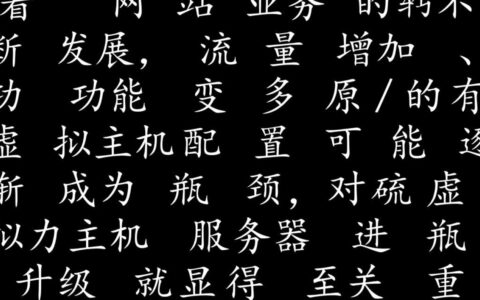 着 网 站 业务 的 不
断 发展， 流 量 增加 、
功 功能 变 多 原/的有
虚 拟主机配 置 可 能 逐
渐 成为 瓶 颈，对硫 虚
拟力主机 服务器 进 瓶
升级 就显得 至关 重